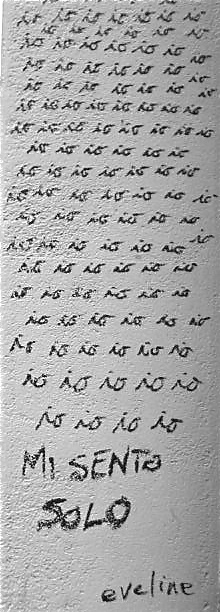 io io io io io io
io io io io io io io
io io io io io io
io io io io io io io
io io io io io io io
io io io io io io io
io io io io io io io io
io io io io io io io io
io io io io io io
io io io io io io io
io io io io io io io
io io io io io io
io io io io io io io
io io io io io io
io io io io io io
io io io io io io
io io io io io io
io io io io io
io io io io
MI SENTO
SOLO
eveline